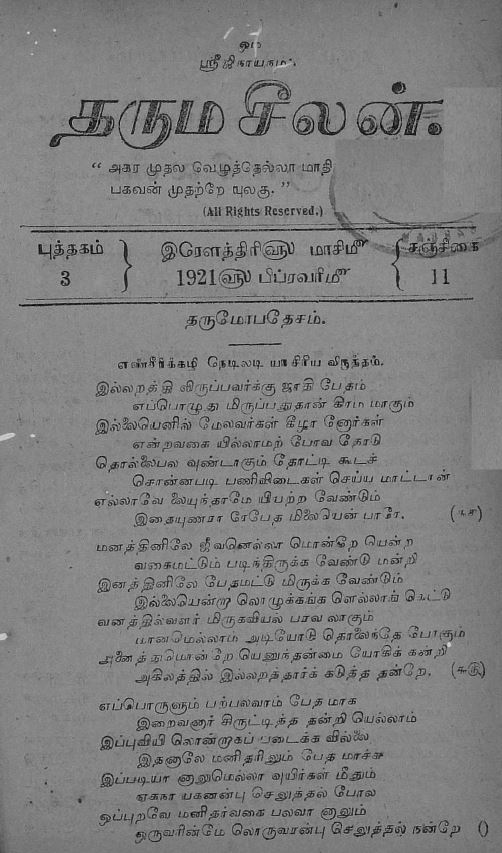 ஓம்
ஸ்ரீ ஜிநாயநம:
தரும சீலன்.
“ அகர முதல வெழுத்தெல்லா மாதி
பகவன் முதற்றே யுலகு. ”
(All Rights Reserved.)
புத்தகம் 3
இரௌத்திரி௵ மாசிமீ
1921௵ பிப்ரவரிமீ
சஞ்சிகை 11
தருமோபதேசம்.
எண்சீர்க்கழி நெடிலடி யாசிரிய விருத்தம்.
இல்லறத்தி லிருப்பவர்க்கு ஜாதி பேதம்
எப்பொழுது மிருப்பதுதான் கிரம மாகும்
இல்லையெனில் மேலவர்கள் கீழா னோர்கள்
என்றவகை யில்லாமற் போவ தோடு
தொல்லைபல வுண்டாகும் தோட்டி கூடச்
சொன்னபடி பணிவிடைகள் செய்ய மாட்டான்
எல்லாவே லையுந்தாமே யியற்ற வேண்டும்
இதையுணரா ரேபேத மிலையென் பாரே.
மனத்தினிலே ஜீவனெல்லா மொன்றே யென்ற
வகைமட்டும் படிந்திருக்க வேண்டு மன்றி
இனத்தினிலே பேதமட்டு மிருக்க வேண்டும்
இல்லையென்றா லொழுக்கங்க ளெல்லாங் கெட்டு
வனத்தில்வளர் மிருகவியல் பாவ லாகும்
மானமெல்லாம் அடியோடு தொலைந்தே போகும்
அனைத்துமொன்றே யெனுந்தன்மை யோகிக் கன்றி
அகிலத்தில் இல்லறத்தார்க் கடுத்த தன்றே.
எப்பொருளும் பற்பலவாம் பேத மாக
இறைவனார் சிருட்டித்த தன்றி யெல்லாம்
இப்புவியி லொன்றாகப் படைக்க வில்லை
இதனாலே மனிதரிலும் பேத மாச்சு
இப்படியா னாலுமெல்லா வுயிர்கள் மீதும்
ஏகநா யகனன்பு செலுத்தல் போல
ஒப்புறவே மனிதர்வகை பலவா னாலும்
ஒருவரின்மே லொருவரன்பு செலுத்தல் நன்றே